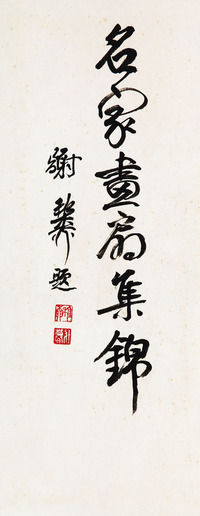 名家畫扇集錦
謝稚題